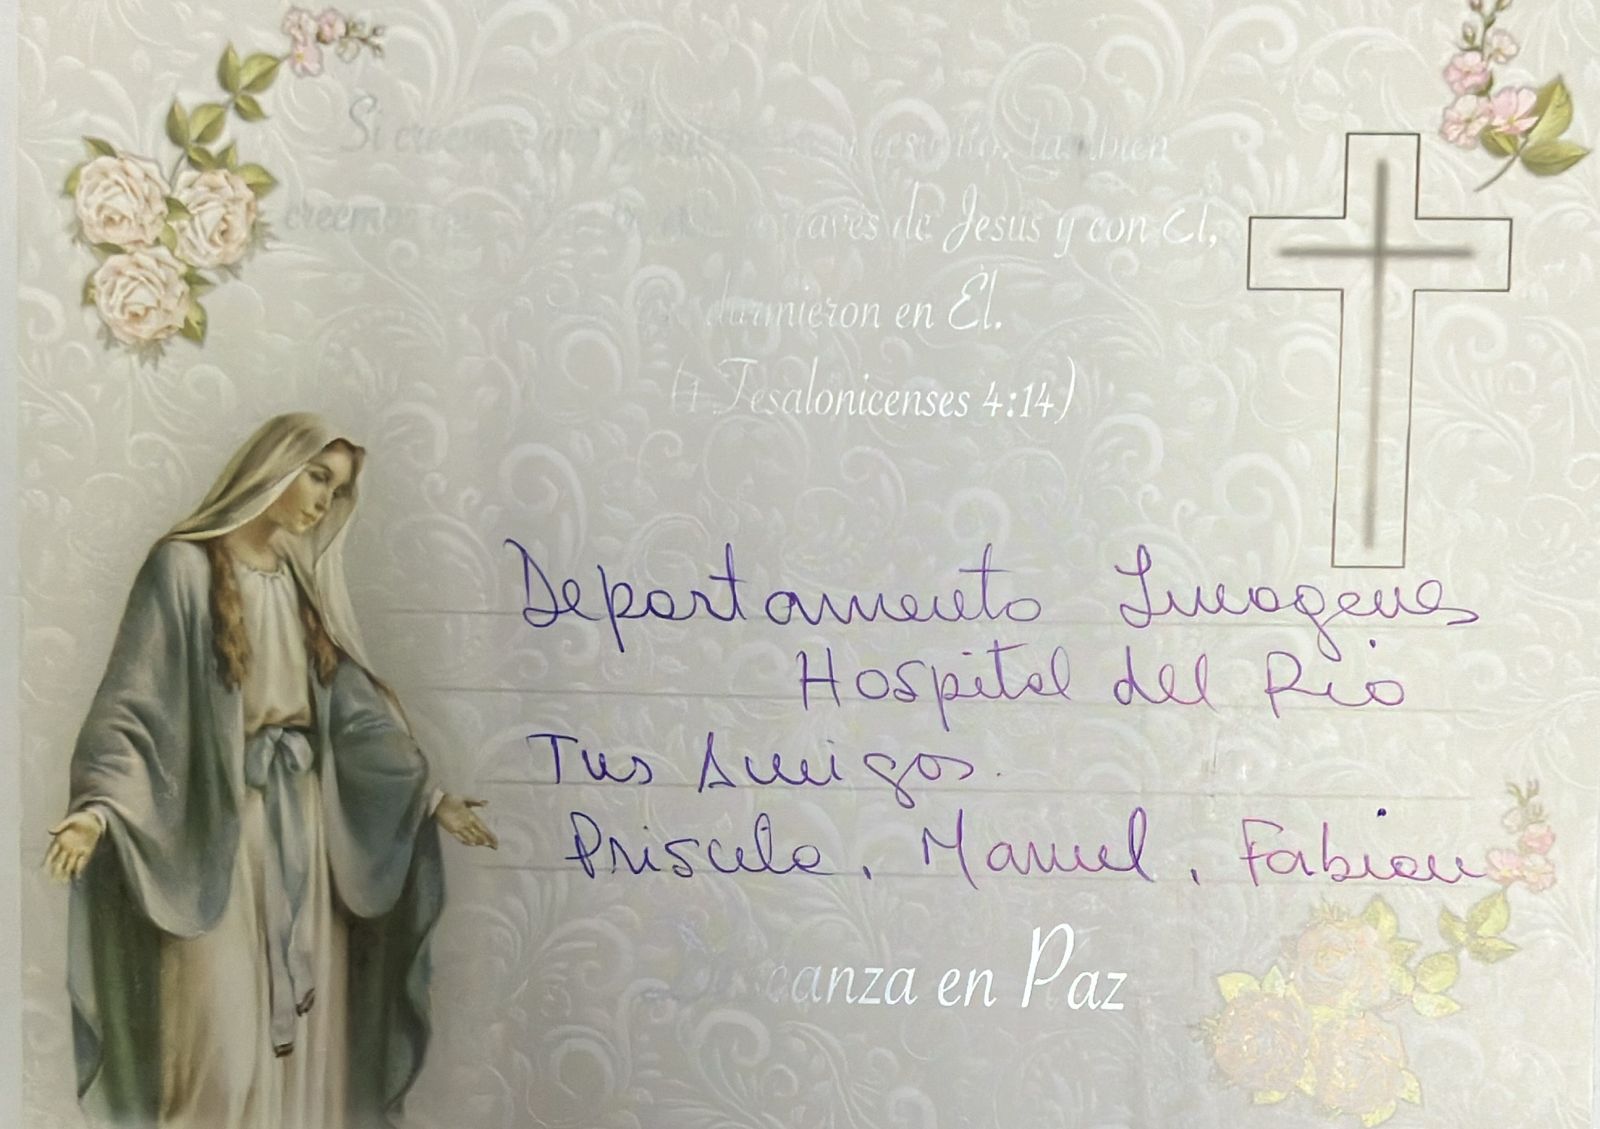 Si creemos que Jesús también
creemos través de Jesús y con Él,
durmieron en Él.
(1 Tesalonicenses 4:14)
Departamento Imagenes
Hospital del Rio
Tus Amigos.
Priscila, Manuel, Fabian
en Paz